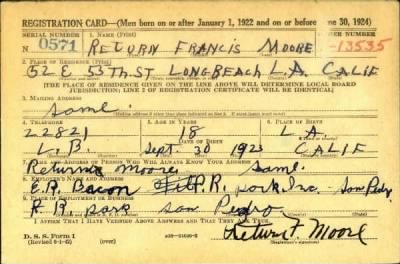 REGISTRATION CARD—(Men born on or after January 1, 1922 and on or before June 30, 1924)
SERIAL NUMBER 1. NAME (Print) ORDER NUMBER
N 0571 RETURN FRANCIS MOORE 13535
2. PLACE OF RESIDENCE (Print)
52 E 53TH ST LONG BEACH L.A. CALIF
[THE PLACE OF RESIDENCE GIVEN ON THE LINE ABOVE WILL DETERMINE LOCAL BOARD
JURISDICTION; LINE 2 OF REGISTRATION CERTIFICATE WILL BE IDENTICAL]
3. MAILING ADDRESS
Same.
4. TELEPHONE 5. AGE IN YEARS 6. PLACE OF BIRTH
22821 18 L.A.
DATE OF BIRTH
L.B. Sept. 30 1923 CALIF
7. NAME AND ADDRESS OF PERSON WHO WILL ALWAYS KNOW YOUR ADDRESS
Moore Same.
8. EMPLOYER'S NAME AND ADDRESS
E.R. Bacon San Pedro
9. PLACE OF EMPLOYMENT OR BUSINESS
San Pedro
I AFFIRM THAT I HAVE VERIFIED ABOVE ANSWERS AND THAT THEY ARE TRUE.
D. S. S. Form 1
(Revised 6-1-42) (over) Return F. Moore